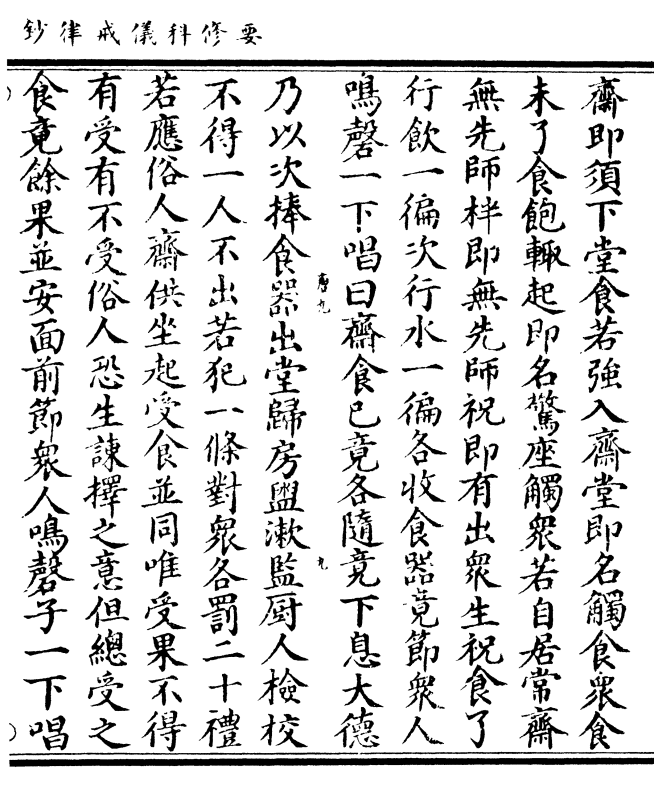 要修科儀戒律鈔
齋即須下堂食若強入齋堂即名觸食衆食
未了食飽輙起即名驚座觸衆若自居常齋
無先師柈即無先師祝即有出衆生祝食了
行飲一徧次行水一徧各收食器竟節衆人
鳴磬一下唱曰齋食已竟各隨竟下息大德
乃以次捧食器出堂歸房盥漱監厨人檢校
唐九
九
不得一人不出若犯一條對衆各罰二十禮
若應俗人齋供坐起受食並同唯受果不得
有受有不受俗人恐生諫擇之意但總受之
食竟餘果並安面前節衆人鳴磬子一下唱